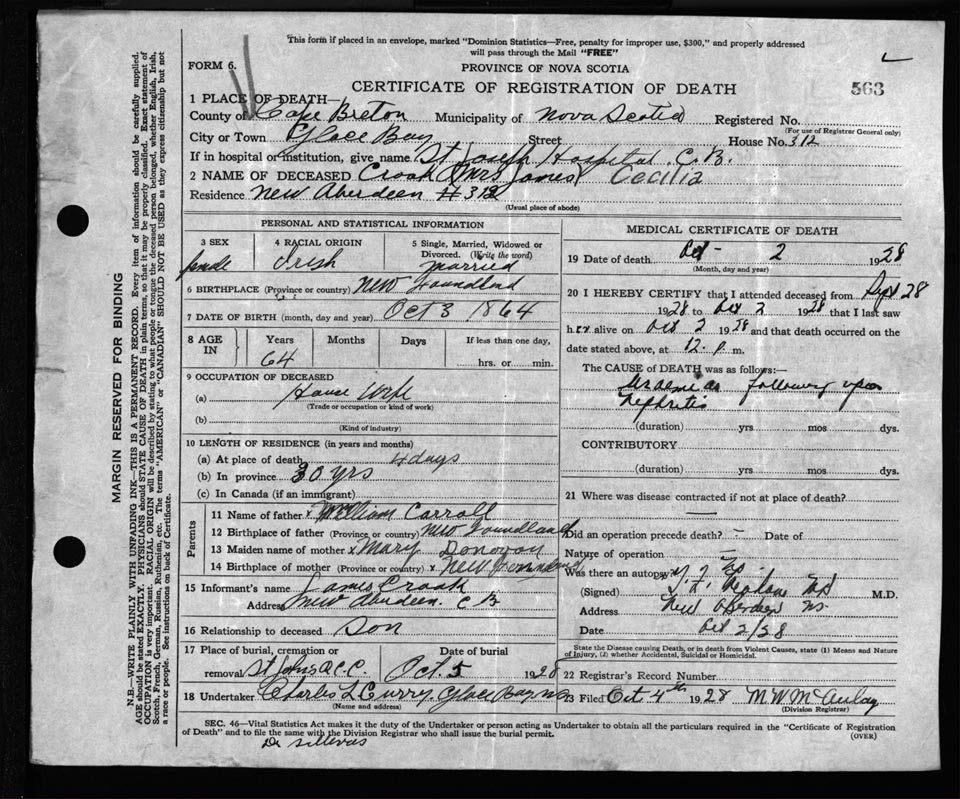 This form if placed in an envelope, marked "Dominion Statistics—Free, penalty for improper use, $300," and properly addressed
will pass through the Mail "FREE"
FORM 6.
PROVINCE OF NOVA SCOTIA
CERTIFICATE OF REGISTRATION OF DEATH
563
1 PLACE OF DEATH—
County of Cape Breton Municipality of Nova Scotia Registered No.
(For use of Registrar General only)
City or Town Glace Bay Street House No. 312
If in hospital or institution, give name St Joseph Hospital C.B.
2 NAME OF DECEASED Crook Mrs James Cecilia
Residence New Aberdeen # 312
(Usual place of abode)
PERSONAL AND STATISTICAL INFORMATION
3 SEX
female
4 RACIAL ORIGIN
Irish
5 Single, Married, Widowed or
Divorced. (Write the word)
married
6 BIRTHPLACE (Province or country) New Foundland
7 DATE OF BIRTH (month, day and year) Oct 3 1864
8 AGE IN
Years Months Days If less than one day,
64
hrs. or min.
9 OCCUPATION OF DECEASED
(a) House Wife
(Trade or occupation or kind of work)
(b)
(Kind of industry)
10 LENGTH OF RESIDENCE (in years and months)
(a) At place of death 4 days
(b) In province 30 yrs
(c) In Canada (if an immigrant)
Parents
11 Name of father x William Carroll
12 Birthplace of father (Province or country) New Foundland
13 Maiden name of mother x Mary Donovan
14 Birthplace of mother (Province or country) x New Foundland
15 Informant's name James Crook
Address New Aberdeen C B
16 Relationship to deceased Son
17 Place of burial, cremation or
removal St Johns R.C.C.
Date of burial
Oct. 5 1928
18 Undertaker Charles L Curry Glace Bay NS
(Name and address)
MEDICAL CERTIFICATE OF DEATH
19 Date of death Oct 2 1928
(Month, day and year)
20 I HEREBY CERTIFY that I attended deceased from Sept 28
1928 to Oct 2 1928 that I last saw
her alive on Oct 2 1928 and that death occurred on the
date stated above, at 12. p. m.
The CAUSE of DEATH was as follows:—
Uraemia following upon
Nephritis
(duration) yrs mos dys.
CONTRIBUTORY
(duration) yrs. mos dys.
21 Where was disease contracted if not at place of death?
—
Did an operation precede death? - Date of
Nature of operation
Was there an autopsy?
(Signed) MD M.D.
Address New Aberdeen NS
Date Oct 2/28
State the Disease causing Death, or in death from Violent Causes, state (1) Means and Nature
of Injury, (2) whether Accidental, Suicidal or Homicidal.
22 Registrar's Record Number
23 Filed Oct 4th 1928 M W McAulay
(Division Registrar)
SEC. 46—Vital Statistics Act makes it the duty of the Undertaker or person acting as Undertaker to obtain all the particulars required in the "Certificate of Registration
of Death" and to file the same with the Division Registrar who shall issue the burial permit.
(OVER)
MARGIN RESERVED FOR BINDING
N.B.—WRITE PLAINLY WITH UNFADING INK—THIS IS A PERMANENT RECORD. Every item of information should be carefully supplied.
AGE should be stated EXACTLY. PHYSICIANS should STATE CAUSE OF DEATH in plain terms, so that it may be properly classified. Exact statement of
OCCUPATION is very important. RACIAL ORIGIN will be described by stating to what people or tongue the deceased person belonged, whether English, Irish,
Scotch, French, German, Russian, Ruthenian, etc. The terms "AMERICAN" or "CANADIAN" SHOULD NOT BE USED as they express citizenship but not
a race or people. See instructions on back of Certificate.